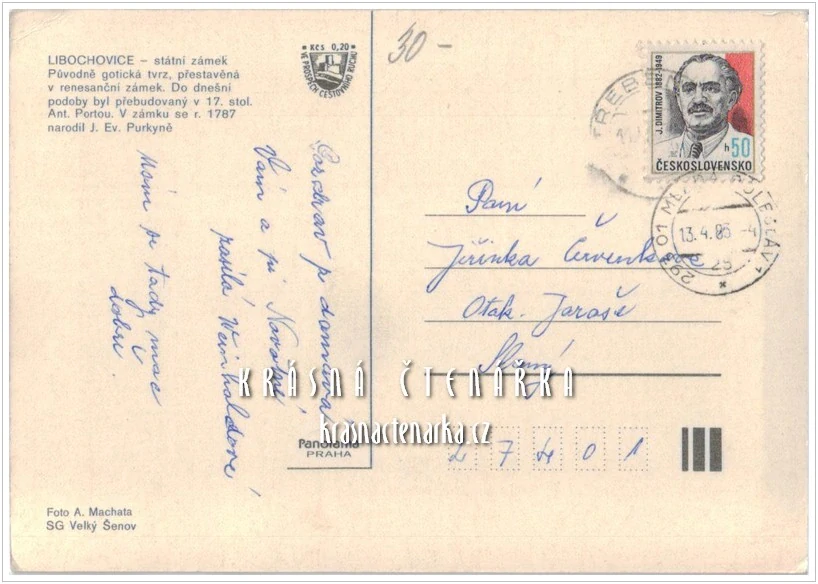 LIBOCHOVICE – státní zámek
Původně gotická tvrz, přestavěná
v renesanční zámek. Do dnešní
podoby byl přebudovaný v 17. stol.
Ant. Portou. V zámku se r. 1787
narodil J. Ev. Purkyně
Kčs 0,20
VE PROSPĚCH CESTOVNÍHO RUCHU
30 –
J. DIMITROV 1882-1949
h 50
ČESKOSLOVENSKO
TŘEB
293 01 MLADÁ BOLESLAV 1
13.4.85 -4
25
Pozdrav
Vám a
posílá
Mám se tady moc
dobře.
Paní
Jiřinka Červenková
Otak. Jaroše
Slaný
KRÁSNÁ ČTENÁŘKA
krasnactenarka.cz
Panorama
PRAHA
27401
Foto A. Machata
SG Velký Šenov